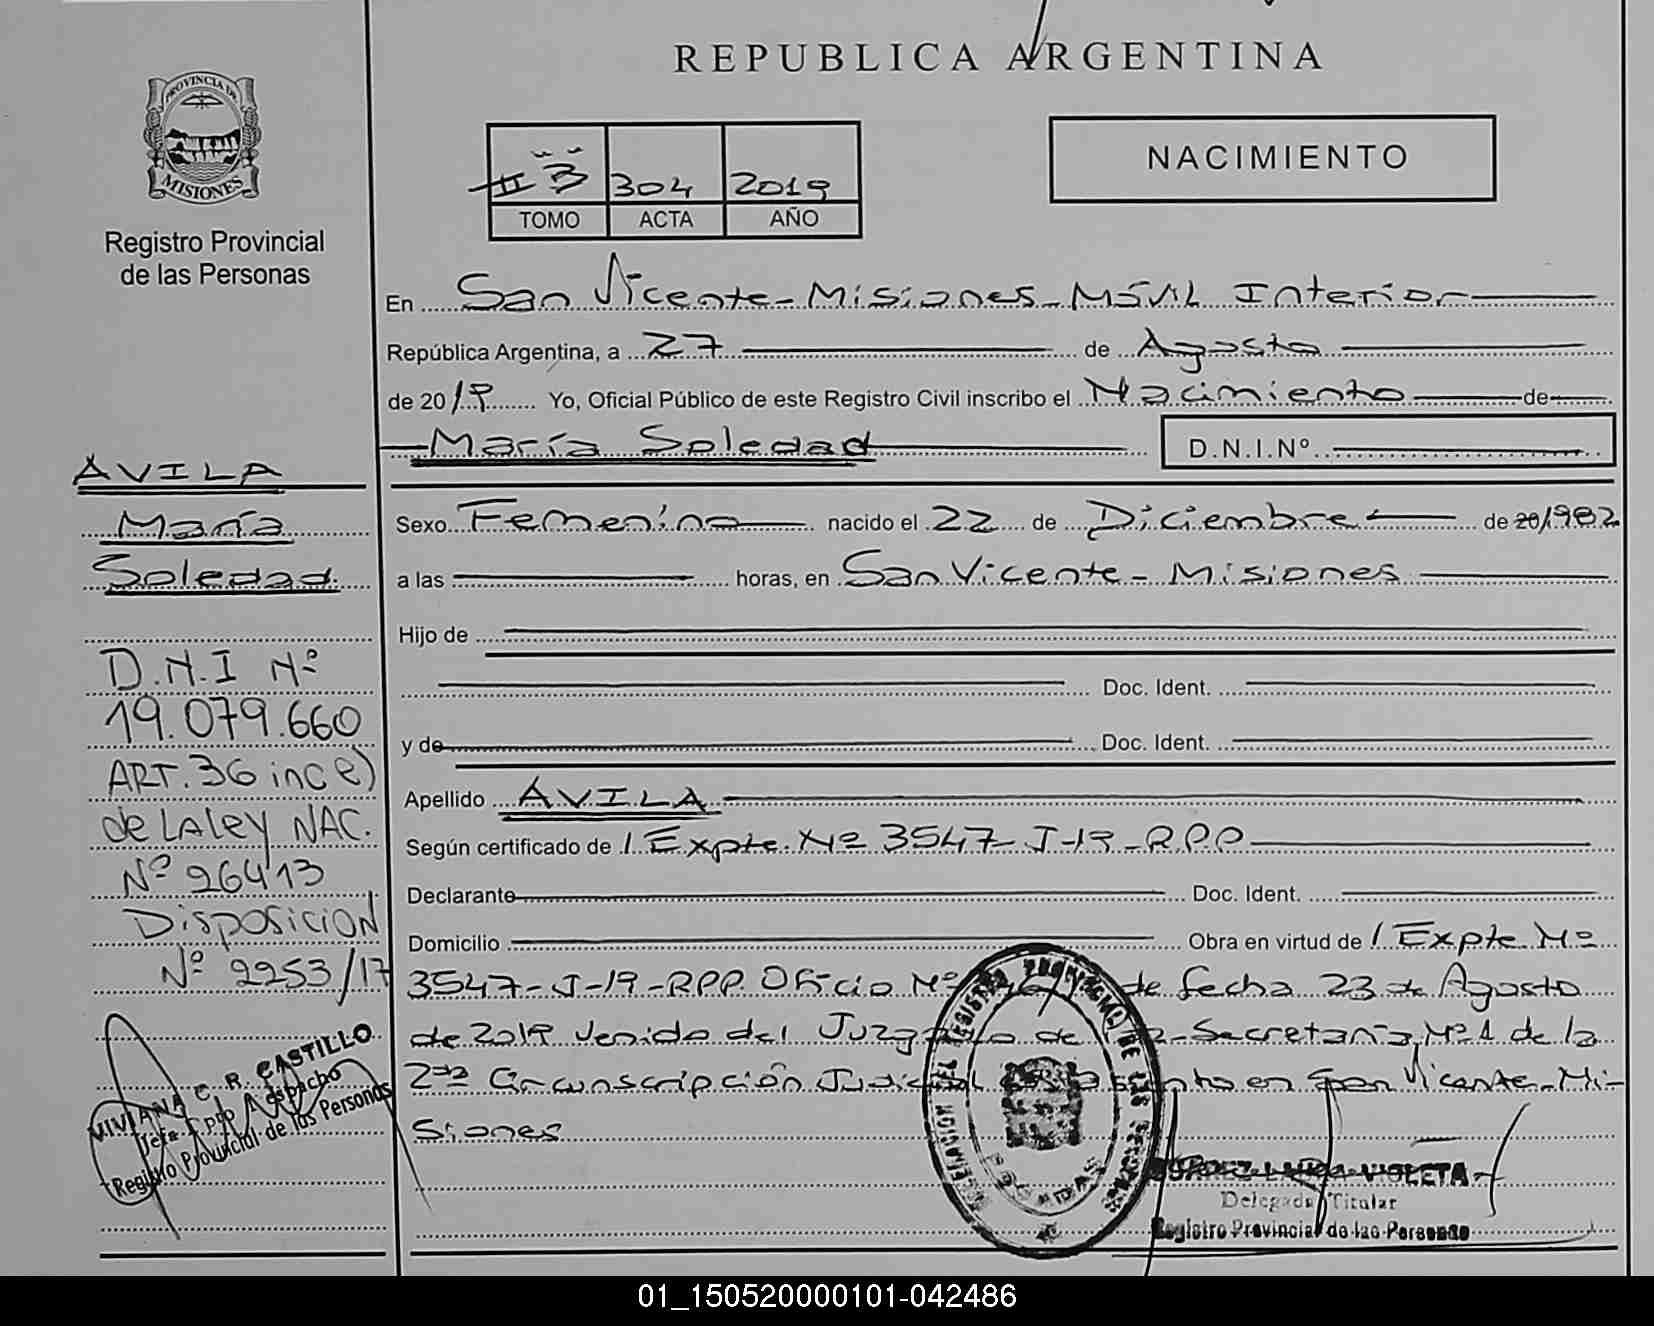 REPUBLICA ARGENTINA
PROVINCIA DE
MISIONES
Registro Provincial
de las Personas
3 304 2019
TOMO ACTA AÑO
NACIMIENTO
En San Vicente - Misiones - Móvil Interior
República Argentina, a 27 de Agosto
de 2019 Yo, Oficial Público de este Registro Civil inscribo el Nacimiento de
María Soledad D.N.I.Nº
Sexo Femenino nacido el 22 de Diciembre de 20/1982
a las horas, en San Vicente - Misiones
Hijo de
Doc. Ident.
y de Doc. Ident.
Apellido AVILA
Según certificado de / Expte. Nº 3547-J-19-RPP
Declarante Doc. Ident.
Domicilio Obra en virtud de / Expte Nº
3547-J-19-RPP Oficio Nº de fecha 23 de Agosto
de 2019 venido del Juzgado de Secretaría Nº1 de la
2da Circunscripción Judicial en San Vicente - Mi-
siones
AVILA
María
Soledad
D.N.I Nº
19.079.660
ART. 36 inc e)
de LA ley NAC.
Nº 26413
DISPOSICION
Nº 2253/17
VIVIANA C. R. CASTILLO
Jefa Dpto Despacho
Registro Provincial de las Personas
LAURA VIOLETA
Delegada Titular
Registro Provincial de las Personas
01_150520000101-042486